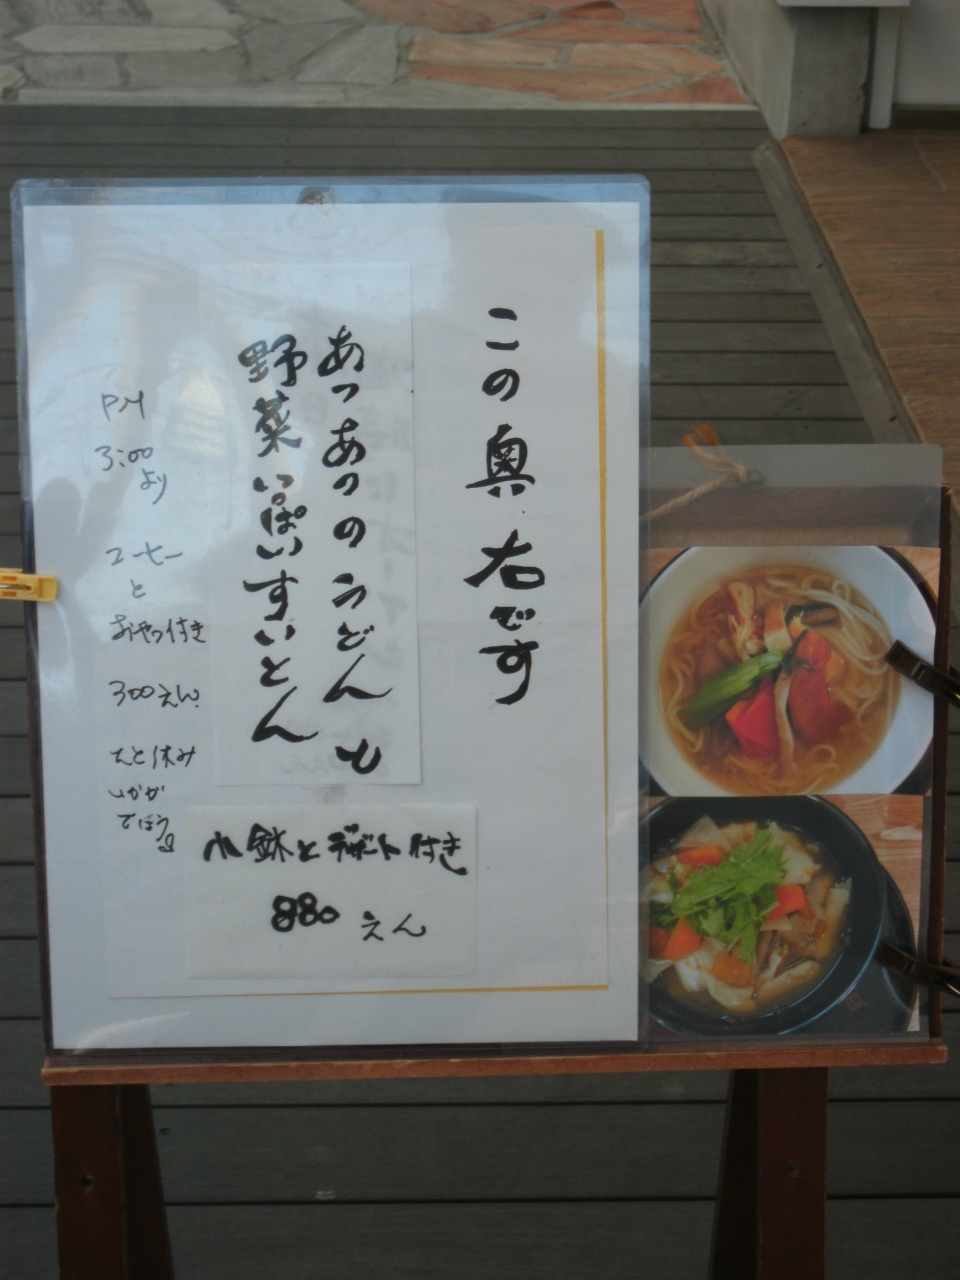 この奥右です
あつあつのうどんも
野菜いっぱいすいとん
小鉢とデザート付き
880えん
PM
3:00
より
コーヒー
と
おやつ付き
300えん
ひと休み
いかが
でしょう